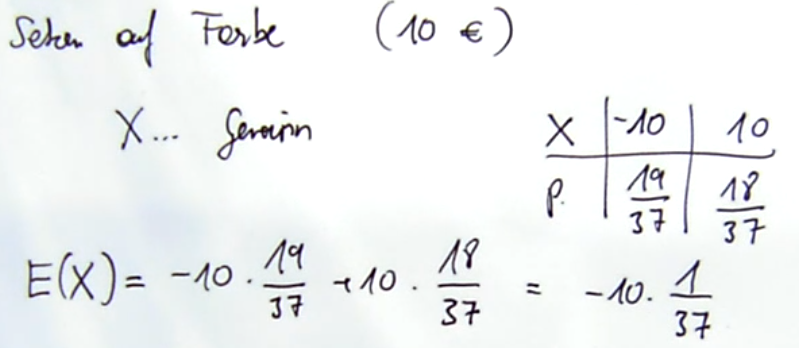 Setzen auf Farbe (10 €)
X... Gewinn
X | -10 | 10
P. | 19/37 | 18/37
E(X) = -10 · 19/37 + 10 · 18/37 = -10 · 1/37